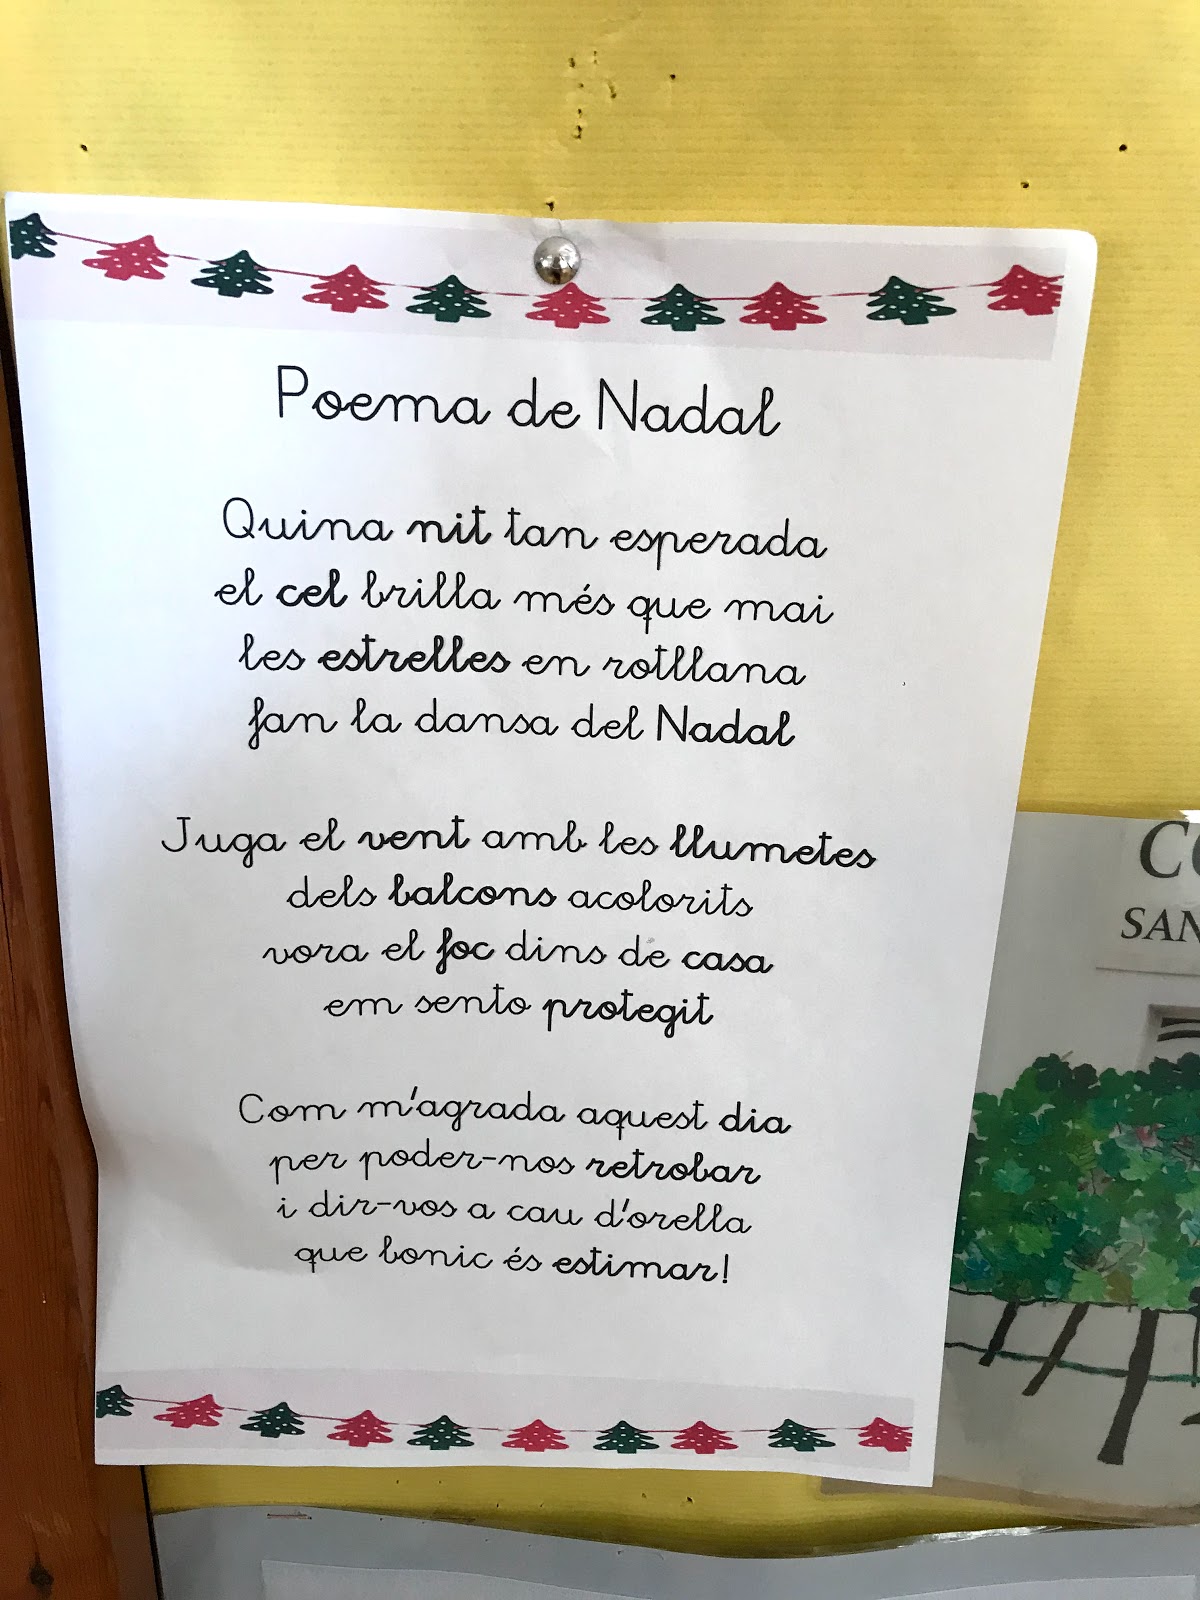 Poema de Nadal
Quina nit tan esperada
el cel brilla més que mai
les estrelles en rotllana
fan la dansa del Nadal
Juga el vent amb les llumetes
dels balcons acolorits
vora el foc dins de casa
em sento protegit
Com m'agrada aquest dia
per poder-nos retrobar
i dir-vos a cau d'orella
que bonic és estimar!
SAN